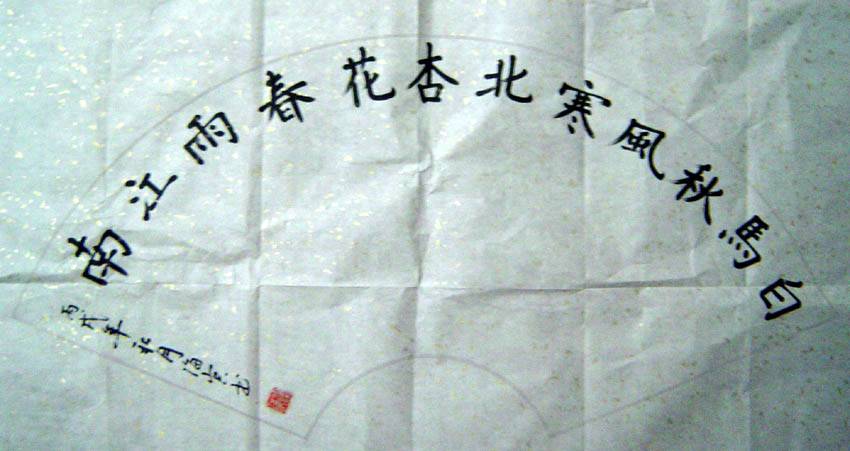 白馬秋風寒北杏花春雨江南
丙戌年月